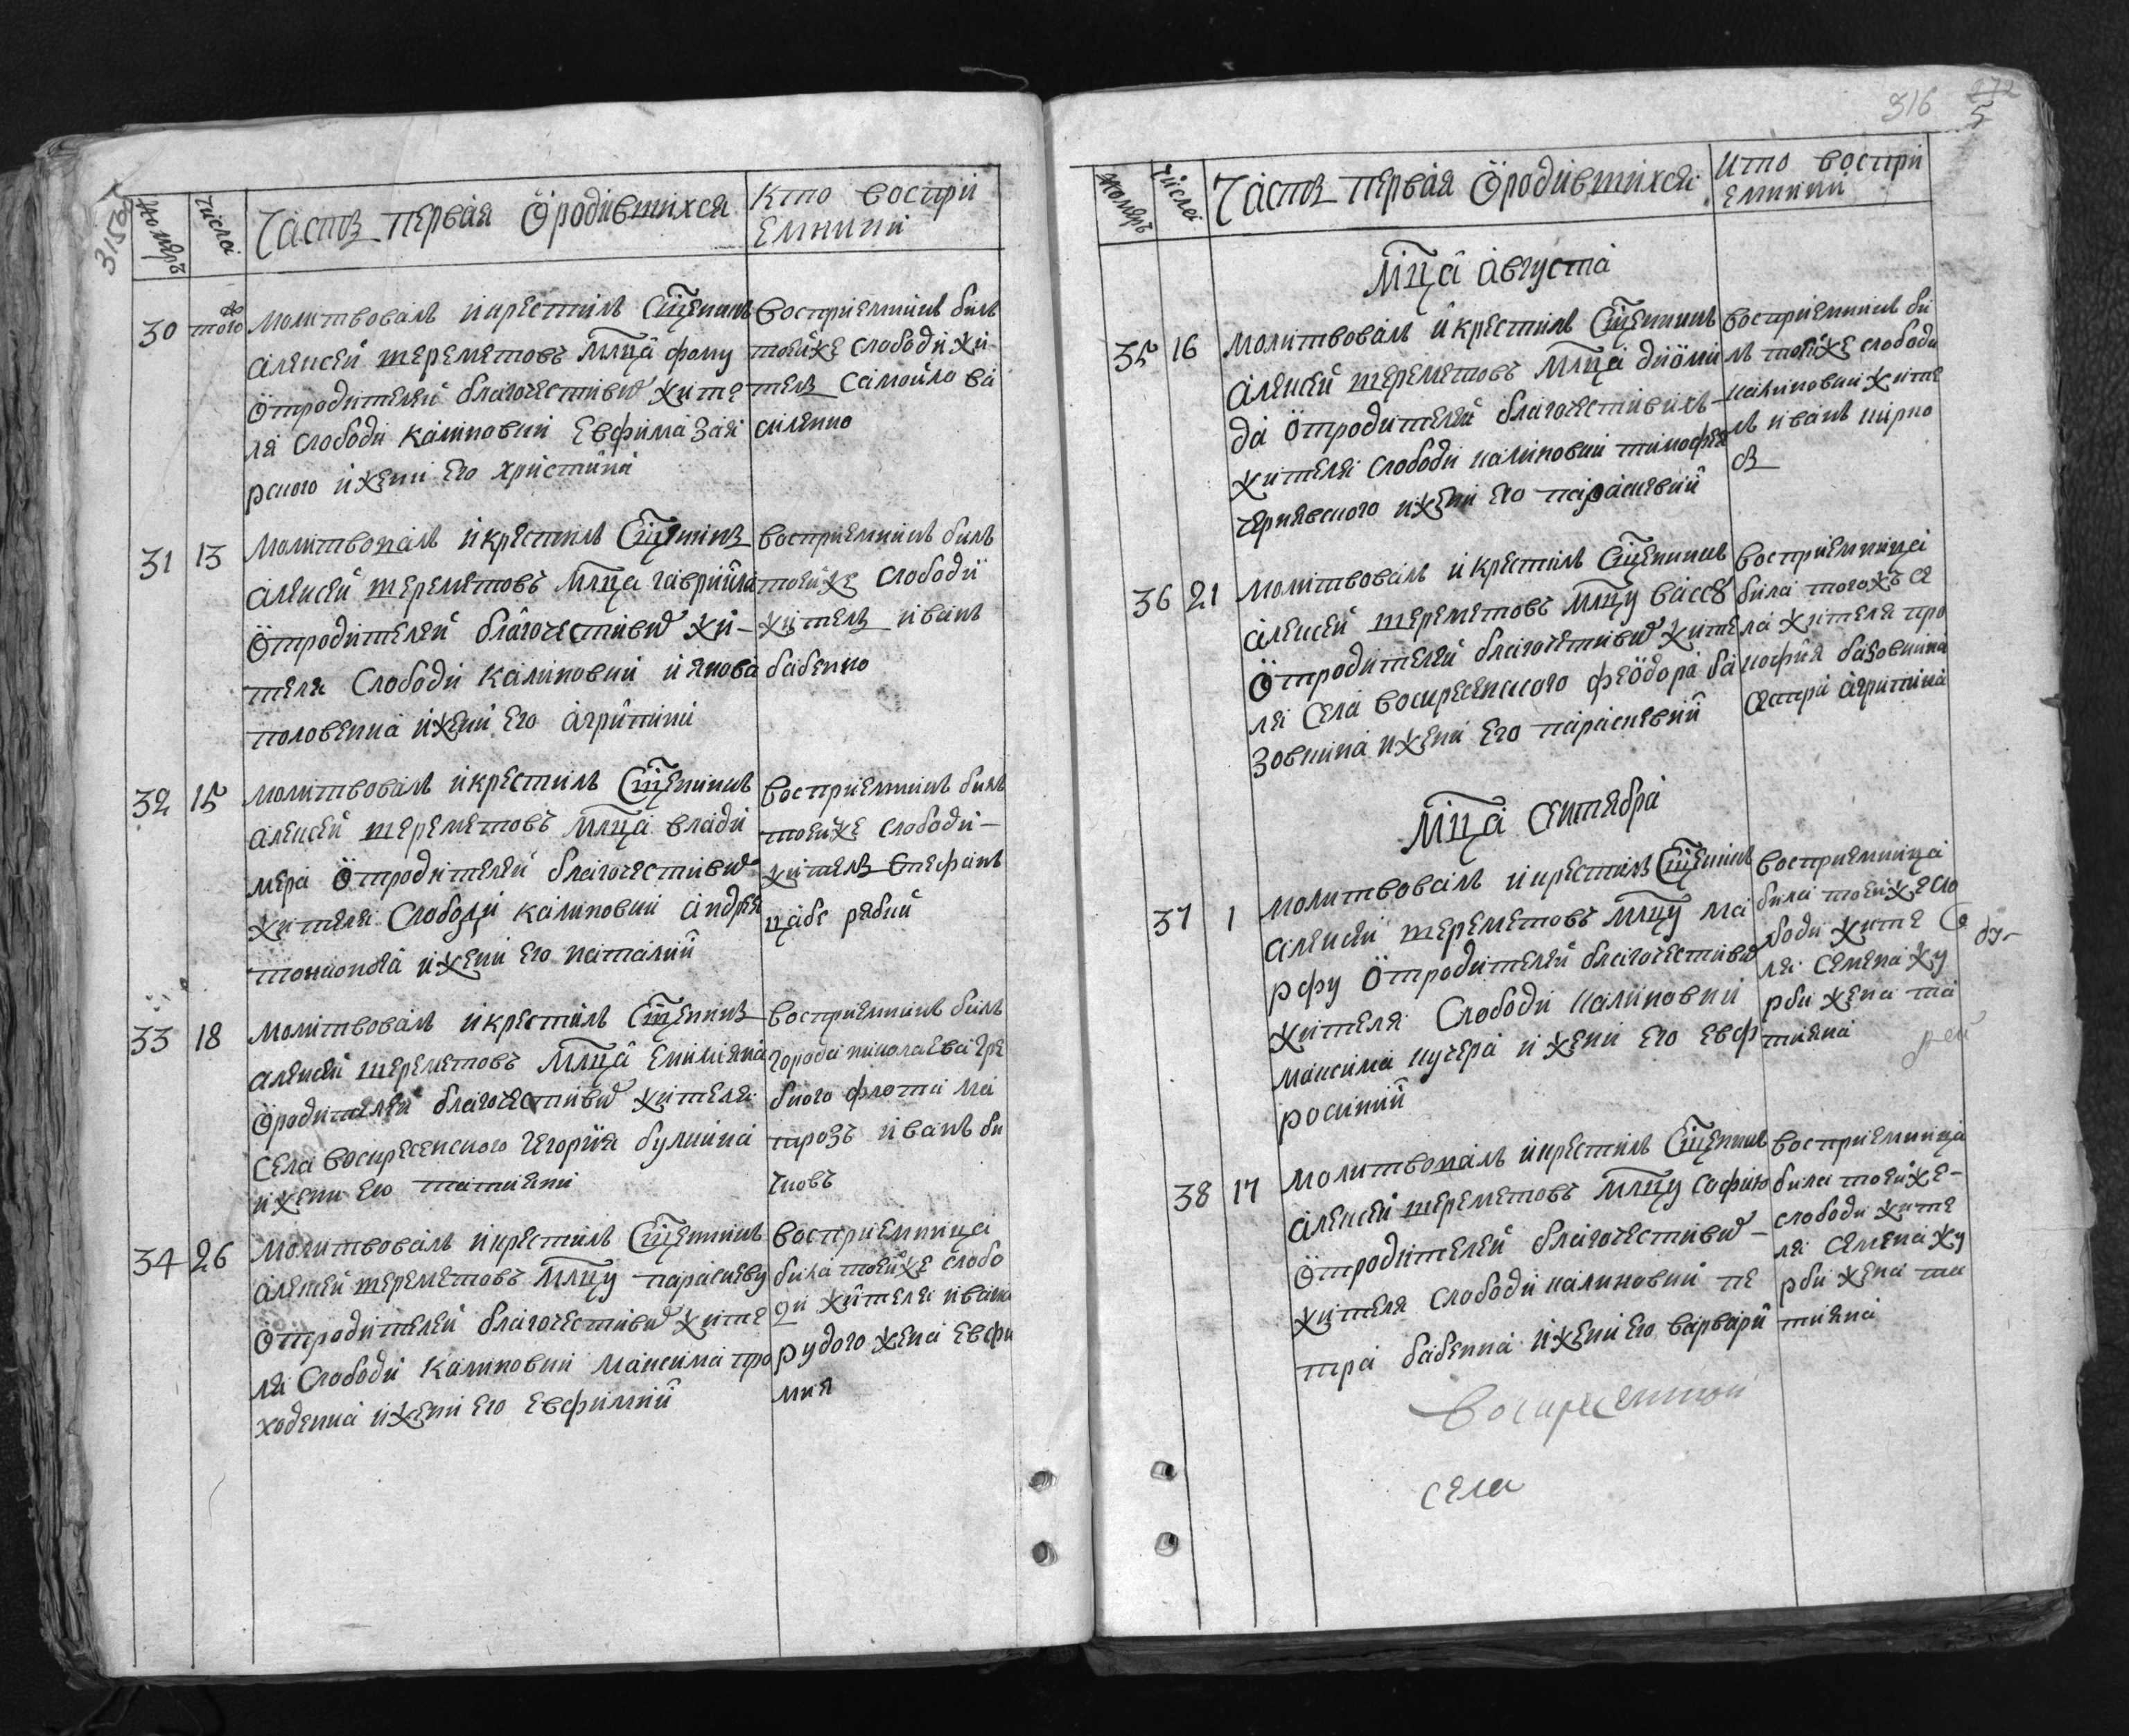 315об
номеръ числа Часть первая Ѿродившихся Кто воспри
емники
30 тогоже молитвовалъ икрестилъ Сщенникъ
алексей шереметовъ Млца фому
Ѿродителей благочестивихъ жите
ля Слободи калиновки Евфима Зая
рского ижени его христини
Восприемникъ билъ
тоейже слободи жи
тель Самойло ва
силенко
31 13 молитвовалъ икрестилъ Сщенникъ
алексей шереметовъ Млца гавриила
Ѿродителей благочестивихъ жи-
теля Слободи калиновки якова
половенка ижени его агрипини
восприемникъ билъ
тоейже Слободи
житель иванъ
бабенко
32 15 молитвовалъ икрестилъ Сщенникъ
алексей шереметовъ Млца влади
мера Ѿродителей благочестивихъ
жителя Слободи калиновки андрея
тонконога ижени его наталии
восприемникъ билъ
тоейже Слободи-
житель Стефанъ
рябий
33 18 молитвовалъ икрестилъ Сщенникъ
алексей шереметовъ Млца Емилияна
Ѿродителей благочестивихъ жителя
Села воскресенского Игория булкина
ижени его татияни
восприемникъ билъ
города николаева гре
бного флота ма
трозъ иванъ би
чковъ
34 26 молитвовалъ икрестилъ Сщенникъ
алексей шереметовъ Млцу параскеву
Ѿродителей благочестивихъ жите
ля Слободи калиновки максима про
ходенка ижени его Евфимии
восприемница
била тоейже слобо
ди жителя ивана
рудого жена Евфи
мия
316
5
номеръ числа Часть первая Ѿродившихся Кто воспри
емники
Мца Августа
35 16 молитвовалъ икрестилъ Сщенникъ
алексей шереметовъ Млца диоми
да Ѿродителей благочестивихъ-
жителя слободи калиновки тимофея
чернявского ижени его параскевии
восприемникъ би
лъ тоейже слободи
калиновки жите
ль иванъ кирно
съ
36 21 молитвовалъ икрестилъ Сщенникъ
алексей шереметовъ Млцу вассу
Ѿродителей благочестивихъ жите
ля Села воскресенского феодора ба
зовкина ижени его параскевии
восприемница
била тогожъ се
ла жителя про
кофия базовкина
сестра агрипина
Мца Сентября
37 1 молитвовалъ икрестилъ Сщенникъ
алексей шереметовъ Млцу ма
рфу Ѿродителей благочестивихъ
жителя Слободи калиновки
максима кучера ижени его Евф
росинии
восприемница
била тоейже сло
боди жите
ля семена жу
рби жена та
тияна
38 17 молитвовалъ икрестилъ Сщенникъ
алексей шереметовъ Млцу софию
Ѿродителей благочестивихъ-
жителя слободи калиновки пе
тра бабенка ижени его варвари
восприемница
била тоейже-
слободи жите
ля семена жу
рби жена та
тияна
села